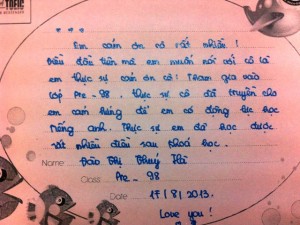 TOEIC
* * *
Em cám ơn cô rất nhiều!
Điều đầu tiên mà em muốn nói với cô là
em thực sự cám ơn cô! Tham gia vào
lớp Pre - 98. thực sự cô đã truyền cho
em cảm hứng để em có động lực học
tiếng anh. Thực sự em đã học được
rất nhiều điều sau khoá học.
Name: Đào Thị Thuý Hà
Class: Pre - 98
Date: 17/8/2013.
Love you!